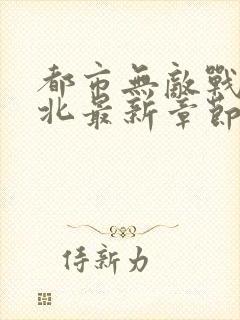 都市無敵戰
北最新章節
侍新力